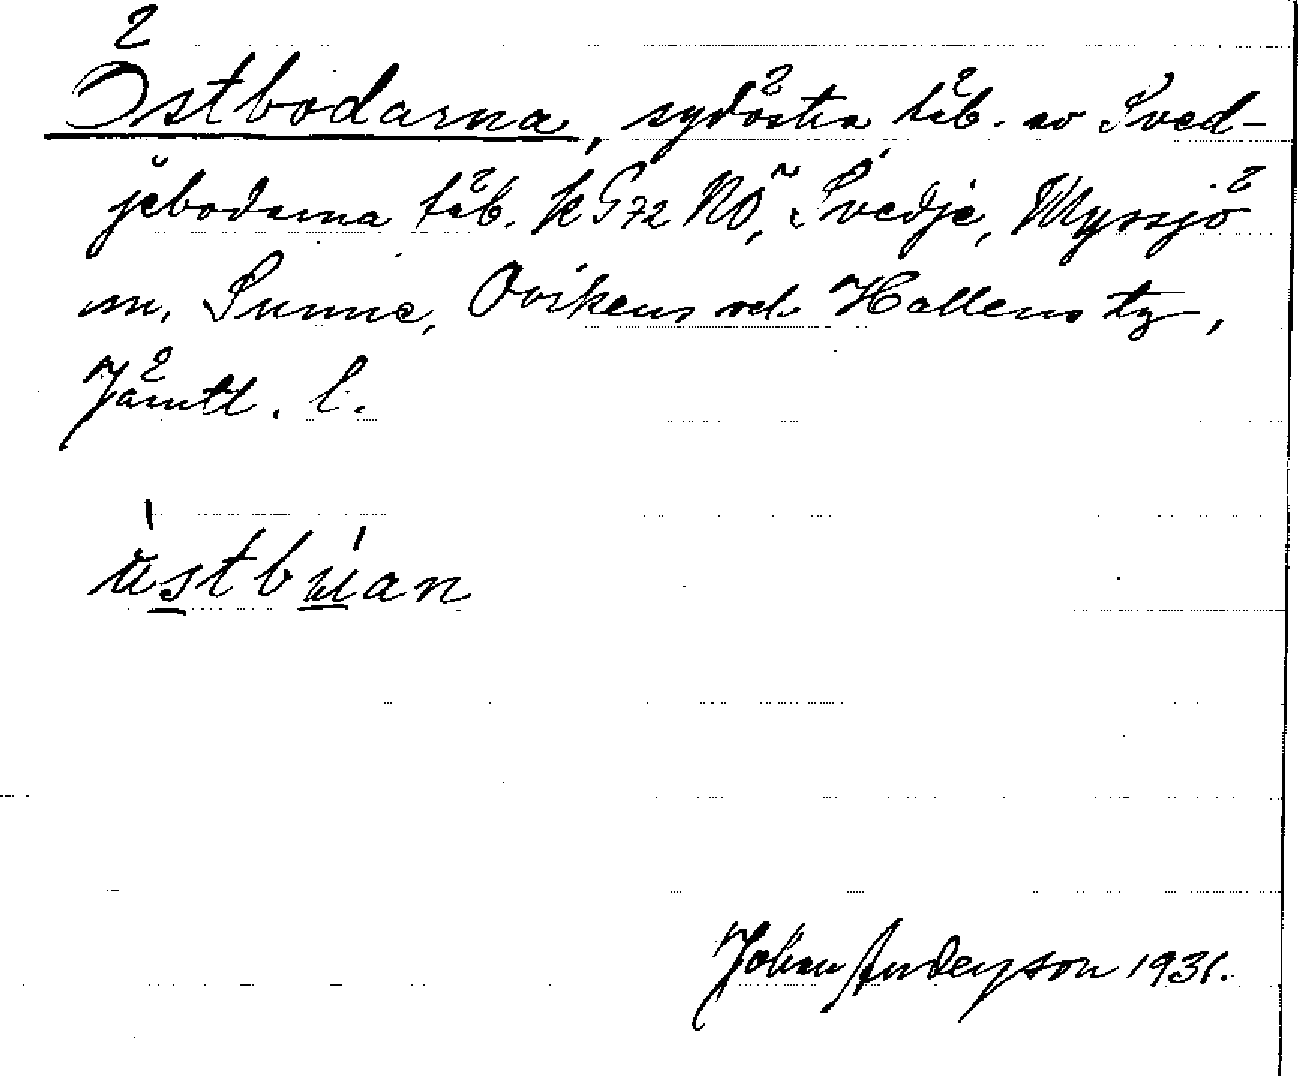 Östbodarna, sydöstra fäb. av Sved-
jebodarna fäb. k G72 NO, Svedje, Myssjö
sn, Sunne, Ovikens och Hallens tg,
Jämtl. l.
üstbuan
Johan Anderson 1931.